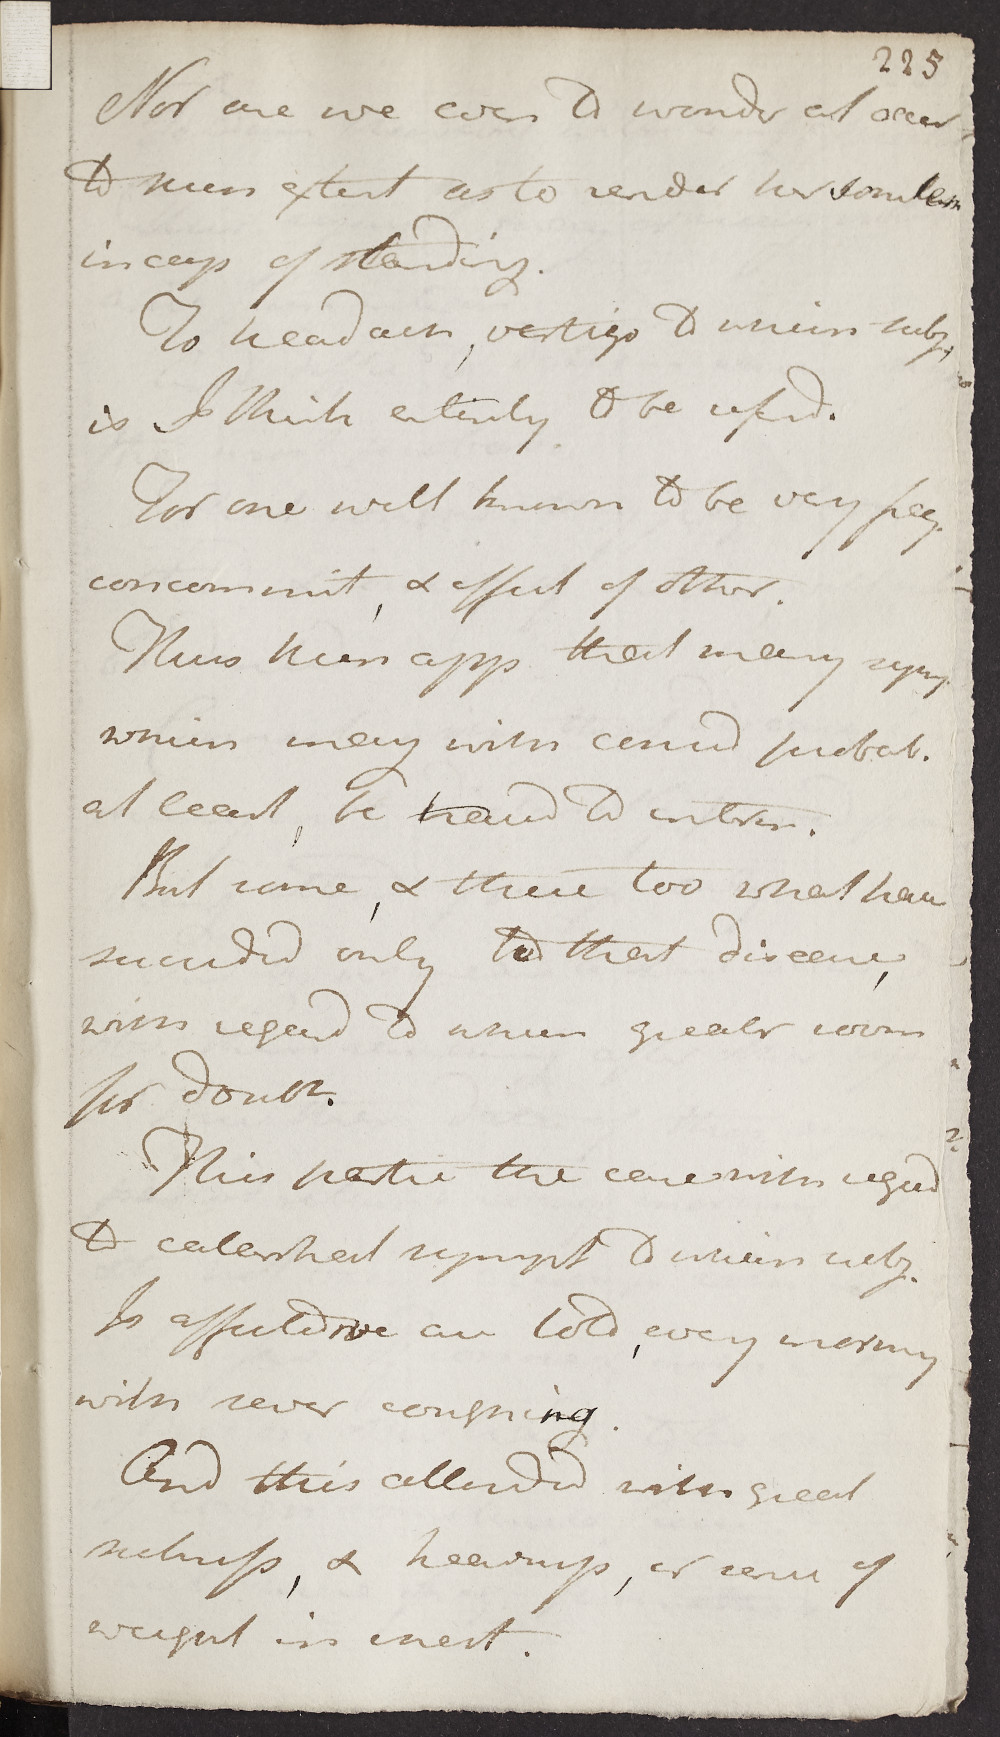 225
Nor are we even to wonder at occur
to such extent as to render her somtim
incap of standing.
To headach, vertigo to which subj.
is I think entirely to be referd.
For one well known to be very freq.
concommit, & effect of other.
Thus then apps that many symp.
which may with consid probab.
at least, be tracd to
But some, & these too what have
succeeded only to that disease,
with regard to which greater room
for doubt.
This partic the case with regard
to catarrhal sympt to which subj.
Is affected we are told, every morning
with sever coughing.
And this attended with great
sickness, & heaviness, or sense of
weight in chest.